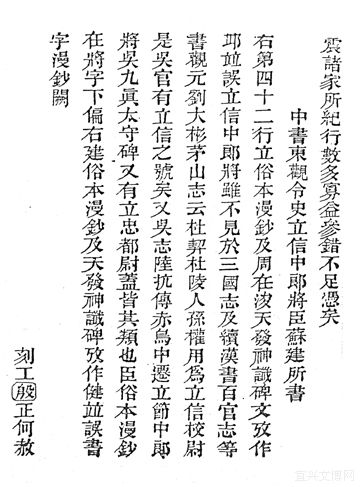 震諸家所紀行數多寡益參錯不足憑矣
中書東觀令史立信中郎將臣蘇建所書
右第四十二行立俗本漫鈔及周在浚天發神讖碑文攷作
邙竝誤立信中郎將雖不見於三國志及續漢書百官志等
書觀元劉大彬茅山志云杜契杜陵人孫權用爲立信校尉
是吳官有立信之號矣又吳志陸抗傳赤烏中遷立節中郎
將吳九眞太守碑又有立忠都尉蓋皆其類也臣俗本漫鈔
在將字下偏右建俗本漫鈔及天發神讖碑攷作健竝誤書
字漫鈔闕
刻工殷正何赦
宜兴文博网